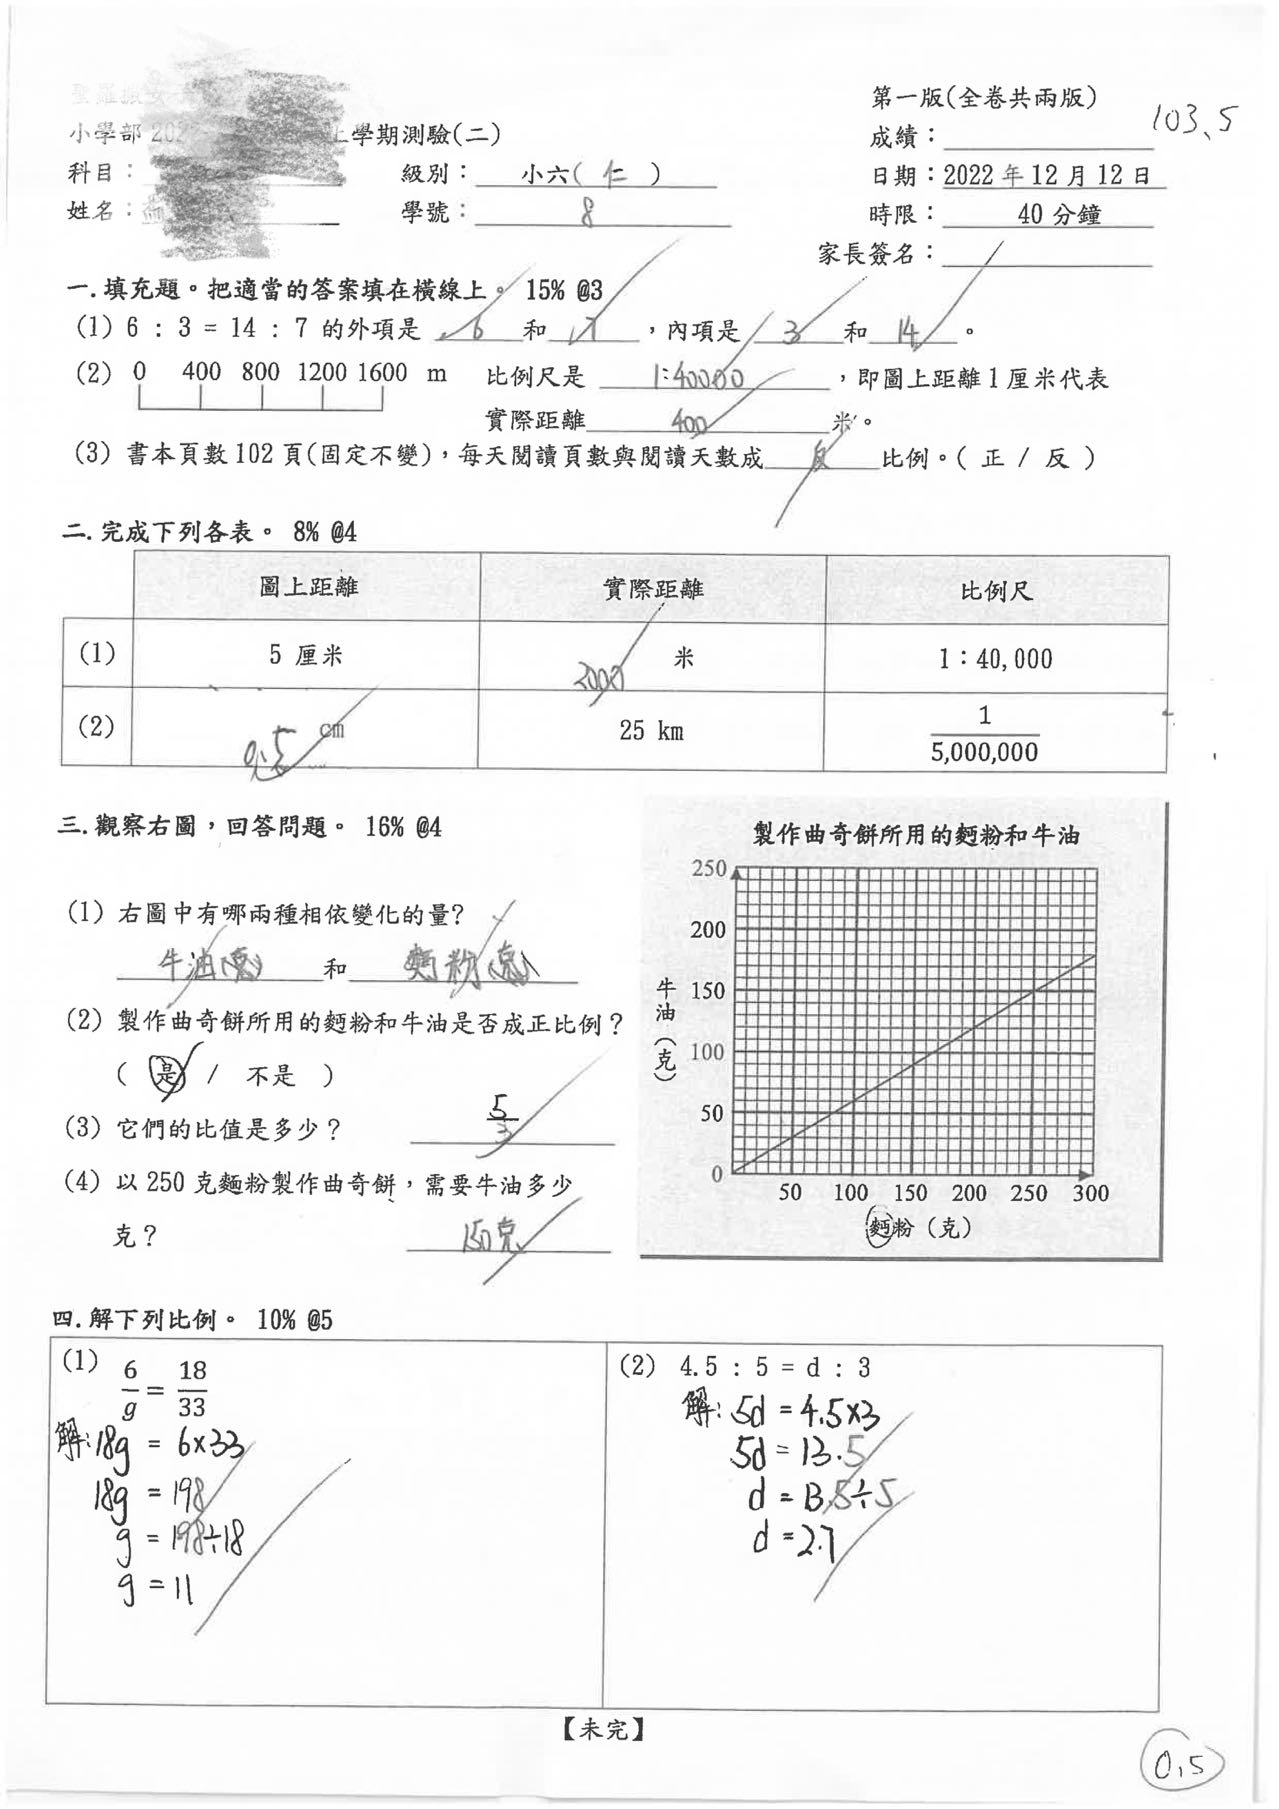 第一版(全卷共兩版)
103.5
小學部 202 上學期測驗(二)
成績：
科目：
級別：小六( 仁 )
日期：2022 年 12 月 12 日
姓名：
學號：8
時限：40 分鐘
家長簽名：
一.填充題。把適當的答案填在橫線上。 15% @3
(1) 6 : 3 = 14 : 7 的外項是 6 和 7 ，內項是 3 和 14 。
(2) 0 400 800 1200 1600 m 比例尺是 1:40000 ，即圖上距離 1 厘米代表
實際距離 400 米。
(3) 書本頁數 102 頁(固定不變)，每天閱讀頁數與閱讀天數成 反 比例。( 正 / 反 )
二.完成下列各表。 8% @4
圖上距離 實際距離 比例尺
(1) 5 厘米 2000 米 1：40,000
(2) 0.5 cm 25 km 1/5,000,000
三.觀察右圖，回答問題。 16% @4
(1) 右圖中有哪兩種相依變化的量?
牛油(克) 和 麵粉(克)
(2) 製作曲奇餅所用的麵粉和牛油是否成正比例？
( 是 / 不是 )
(3) 它們的比值是多少？ 5/3
(4) 以 250 克麵粉製作曲奇餅，需要牛油多少
克？ 150克
製作曲奇餅所用的麵粉和牛油
250
200
150
100
50
0
牛油(克)
50 100 150 200 250 300
麵粉（克）
四.解下列比例。 10% @5
(1) 6/g = 18/33
解:18g = 6×33
18g = 198
g = 198÷18
g = 11
(2) 4.5 : 5 = d : 3
解:5d = 4.5×3
5d = 13.5
d = 13.5÷5
d = 2.7
【未完】
0.5